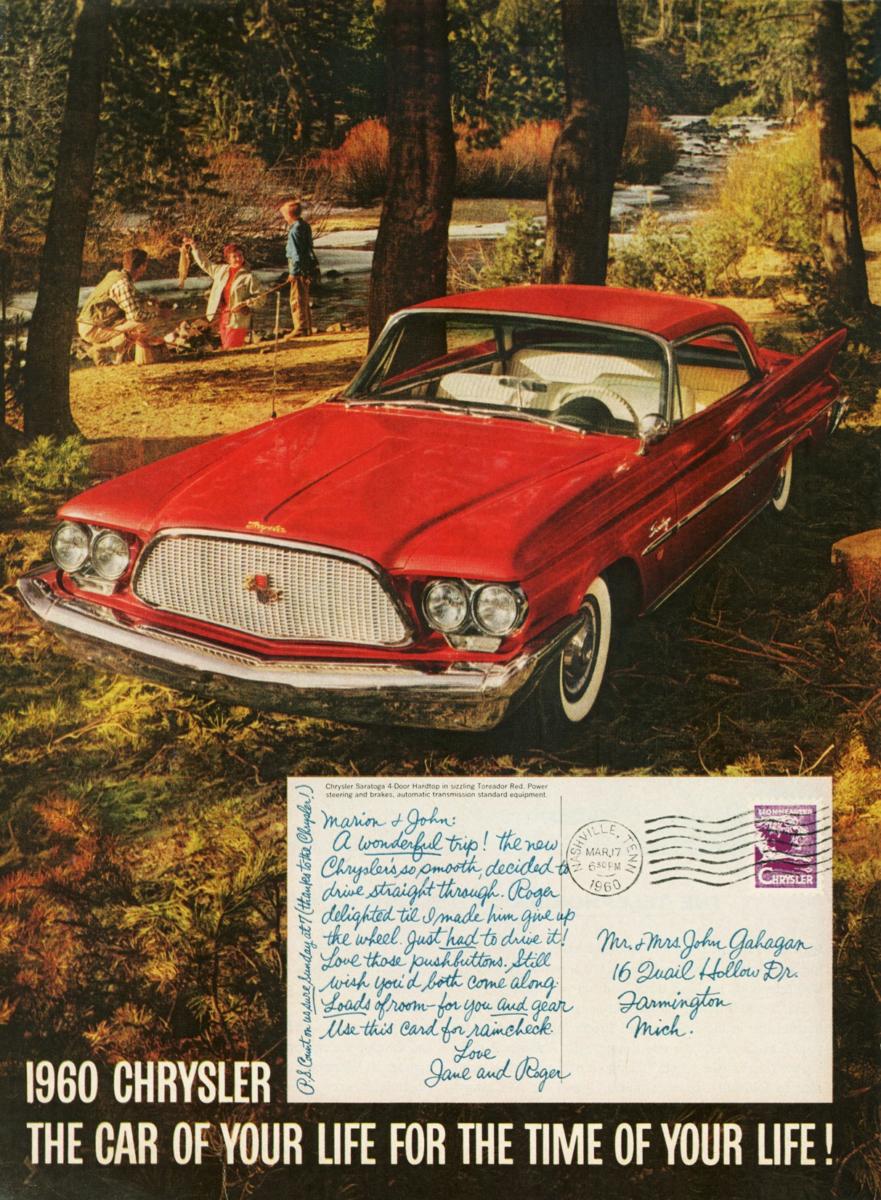 Chrysler Saratoga 4-Door Hardtop in sizzling Toreador Red. Power
steering and brakes, automatic transmission standard equipment.
Marion & John:
A wonderful trip! the new
Chrysler's so smooth, decided to
drive straight through. Roger
delighted til I made him give up
the wheel. Just had to drive it!
Love those pushbuttons. Still
wish you'd both come along.
Loads of room—for you and gear
Use this card for raincheck.
Love
Jane and Roger
P.S. Count on us sure Sunday at 7 (thanks to the Chrysler)
NASHVILLE, TENN
MAR, 17
6 30 PM
1960
LIONHEARTED
CHRYSLER
Mr. & Mrs. John Gahagan
16 Quail Hollow Dr.
Farmington
Mich.
1960 CHRYSLER
THE CAR OF YOUR LIFE FOR THE TIME OF YOUR LIFE!